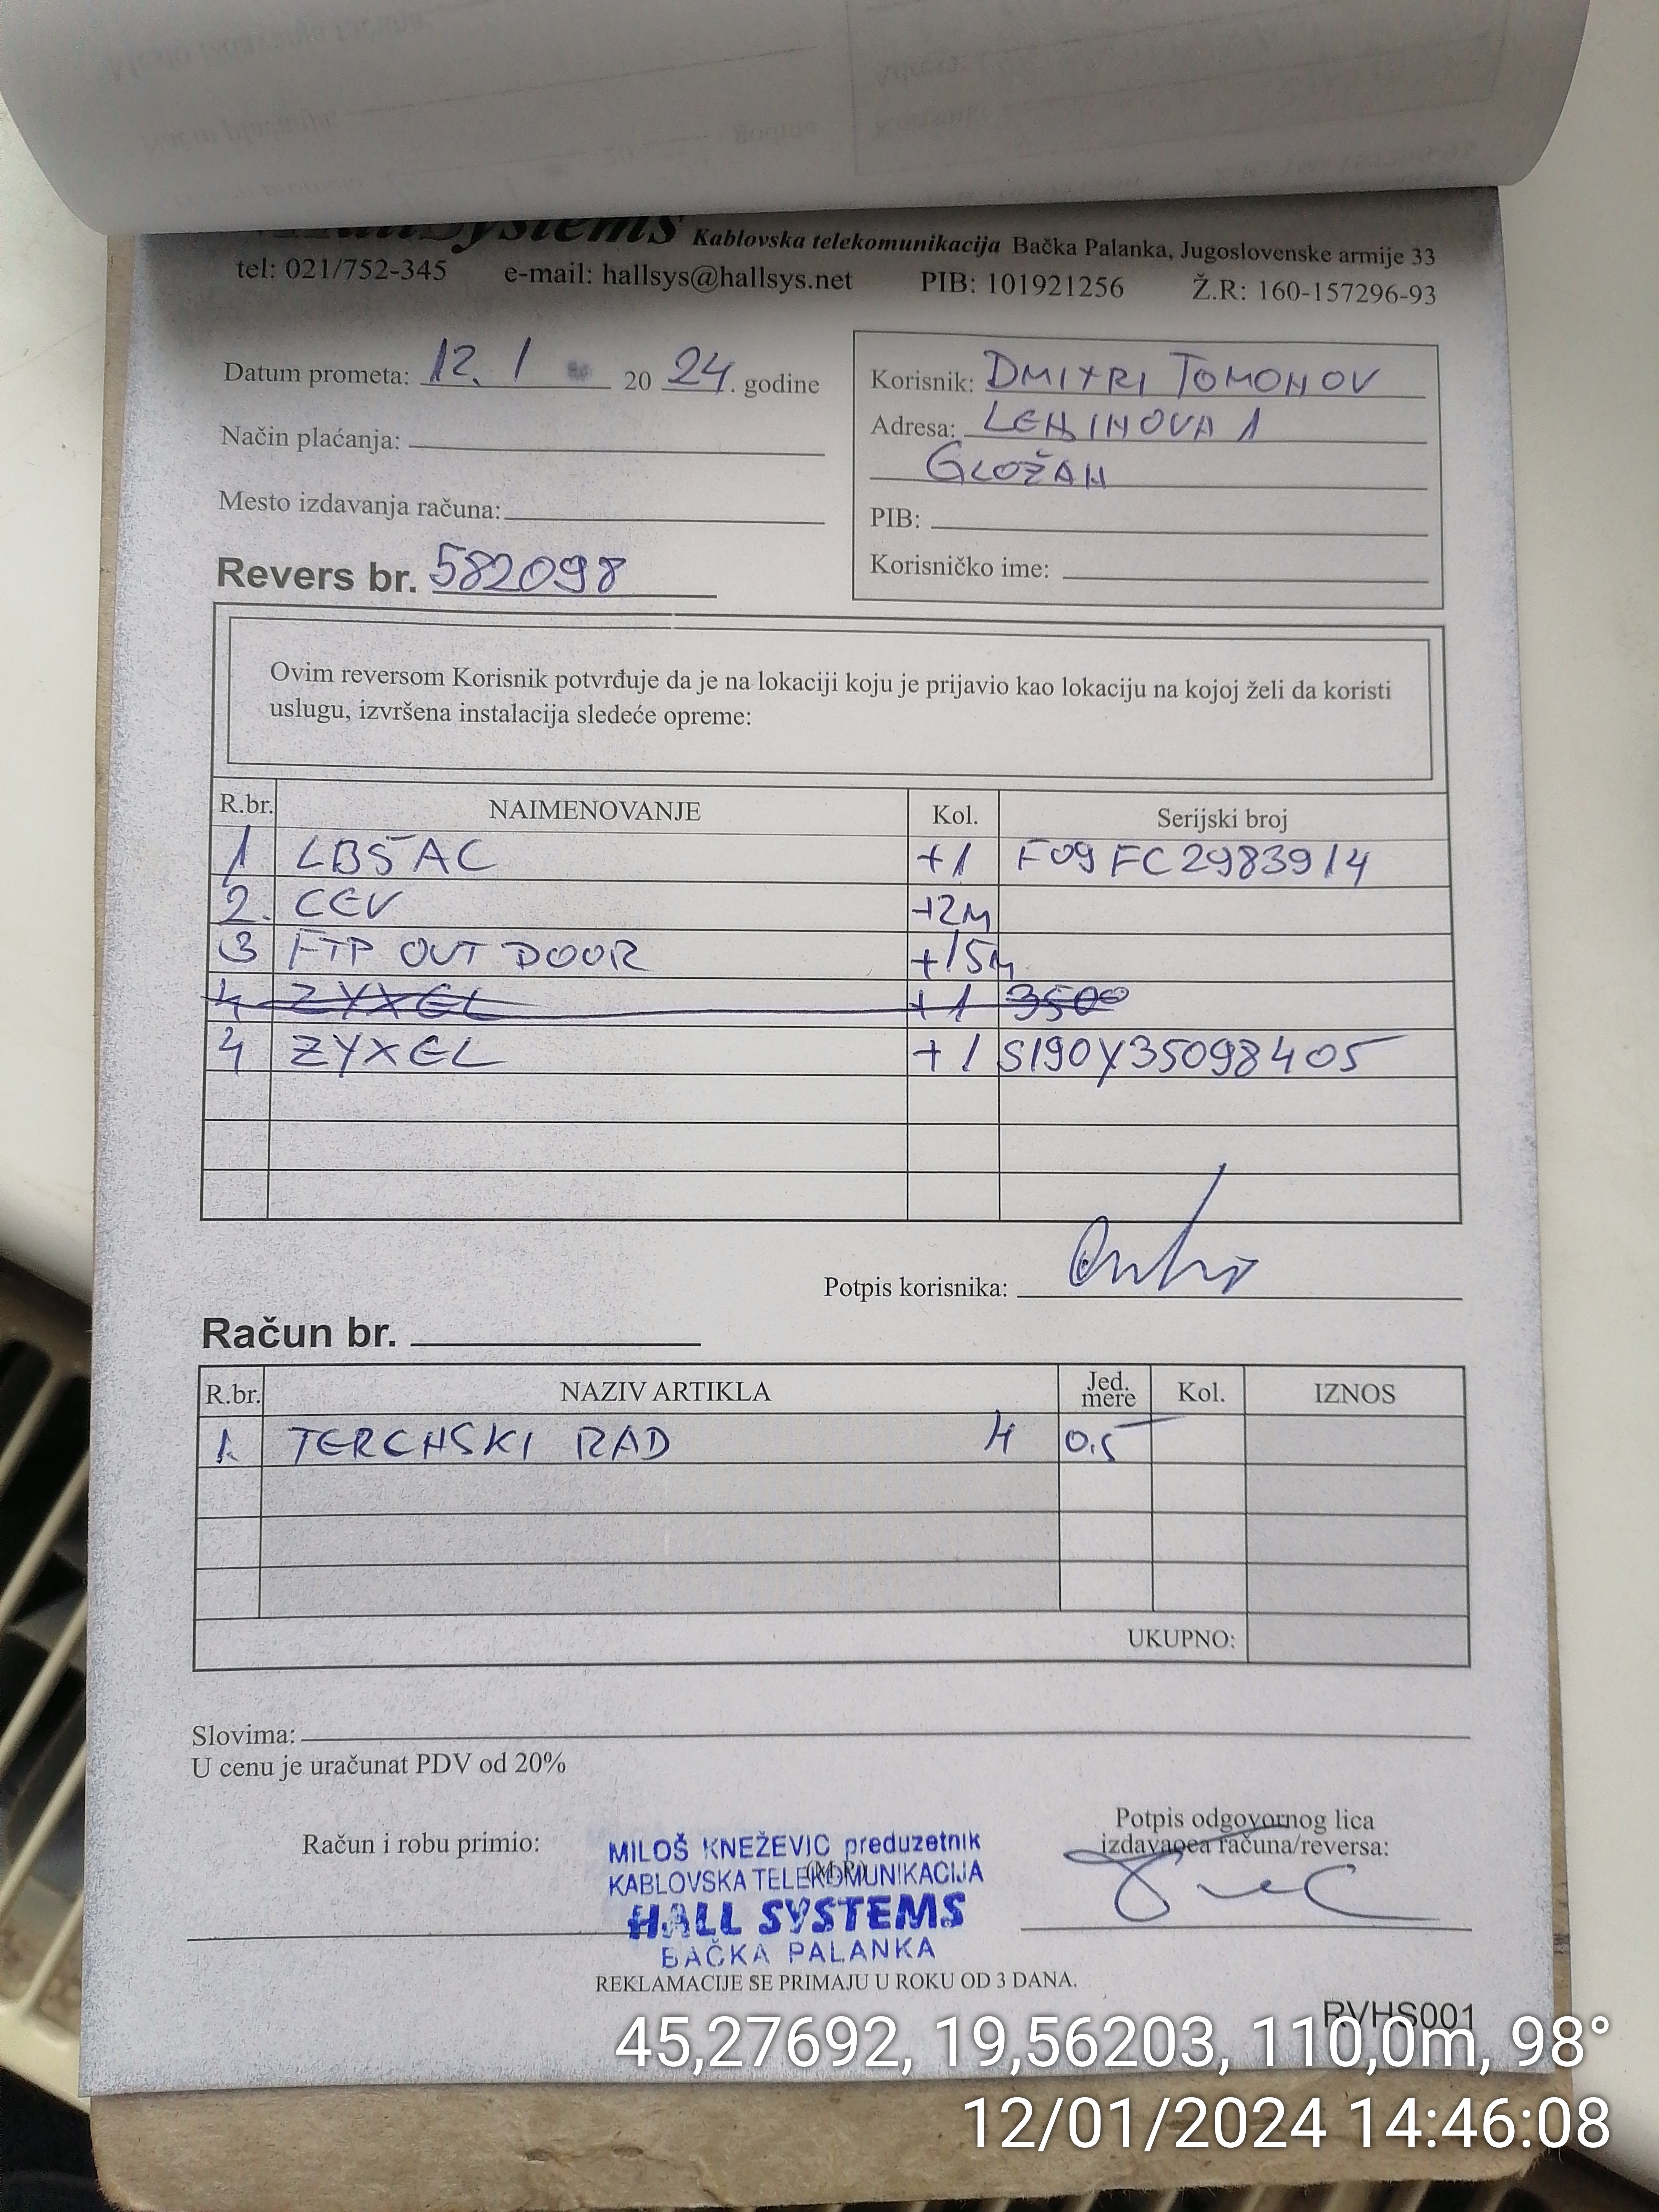 HallSystems Kablovska telekomunikacija Bačka Palanka, Jugoslovenske armije 33
tel: 021/752-345 e-mail: hallsys@hallsys.net PIB: 101921256 Ž.R: 160-157296-93
Datum prometa: 12. 1 20 24. godine
Način plaćanja:
Mesto izdavanja računa:
Revers br. 582098
Korisnik: DMITRI TOMONOV
Adresa: LENJINOVA 1
GLOŽAN
PIB:
Korisničko ime:
Ovim reversom Korisnik potvrđuje da je na lokaciji koju je prijavio kao lokaciju na kojoj želi da koristi
uslugu, izvršena instalacija sledeće opreme:
R.br. NAIMENOVANJE Kol. Serijski broj
1 LB5AC +1 F09FC2983914
2. CEV +2M
3 FTP OUT DOOR +15M
4 ZYXEL +1 3500
4 ZYXEL +1 S190Y35098405
Potpis korisnika:
Račun br.
R.br. NAZIV ARTIKLA Jed. mere Kol. IZNOS
1. TERCHSKI RAD H 0.5
UKUPNO:
Slovima:
U cenu je uračunat PDV od 20%
Račun i robu primio:
MILOŠ KNEŽEVIC preduzetnik
(M.P.)
KABLOVSKA TELEKOMUNIKACIJA
HALL SYSTEMS
BAČKA PALANKA
Potpis odgovornog lica
izdavaoca računa/reversa:
REKLAMACIJE SE PRIMAJU U ROKU OD 3 DANA.
RVHS001
45,27692, 19,56203, 110,0m, 98°
12/01/2024 14:46:08